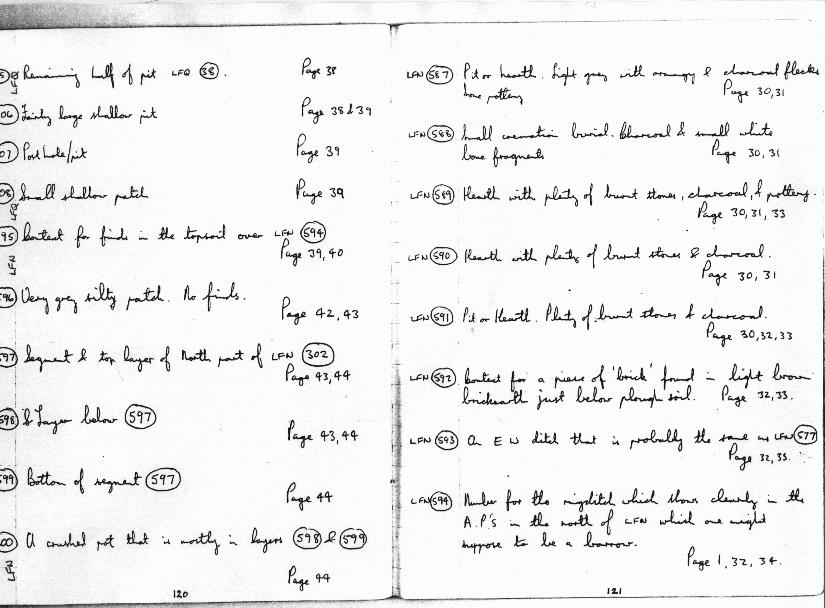 5) Remaining half of pit LFQ (38). Page 38
LFQ
06) Fairly large shallow pit Page 38 & 39
07) Post hole/pit Page 39
08) Small shallow patch Page 39
LFQ
95) Context for finds in the topsoil over LFN (594)
Page 39, 40
LFN
596) Very grey silty patch. No finds.
Page 42, 43
597) Segment & top layer of North part of LFN (302)
Page 43, 44
598) & Layer below (597)
Page 43, 44
599) Bottom of segment (597)
Page 44
00) A crushed pot that is mostly in layers (598) & (599)
LFN
Page 44
120
LFN (587) Pit or hearth. Light grey with orangy & charcoal flecks
Page 30, 31
LFN (588) Small cremation burial. Charcoal & small white
bone fragments Page 30, 31
LFN (589) Hearth with plenty of burnt stones, charcoal, & pottery.
Page 30, 31, 33
LFN (590) Hearth with plenty of burnt stones & charcoal.
Page 30, 31
LFN (591) Pit or Hearth. Plenty of burnt stones & charcoal.
Page 30, 32, 33
LFN (592) Context for a piece of 'brick' found in light brown
brickearth just below plough soil. Page 32, 33.
LFN (593) An E W ditch that is probably the same as LFN (577)
Page 32, 33.
LFN (594) Number for the ringditch which shows clearly in the
A.P's in the north of LFN which one might
suppose to be a barrow.
Page 1, 32, 34.
121